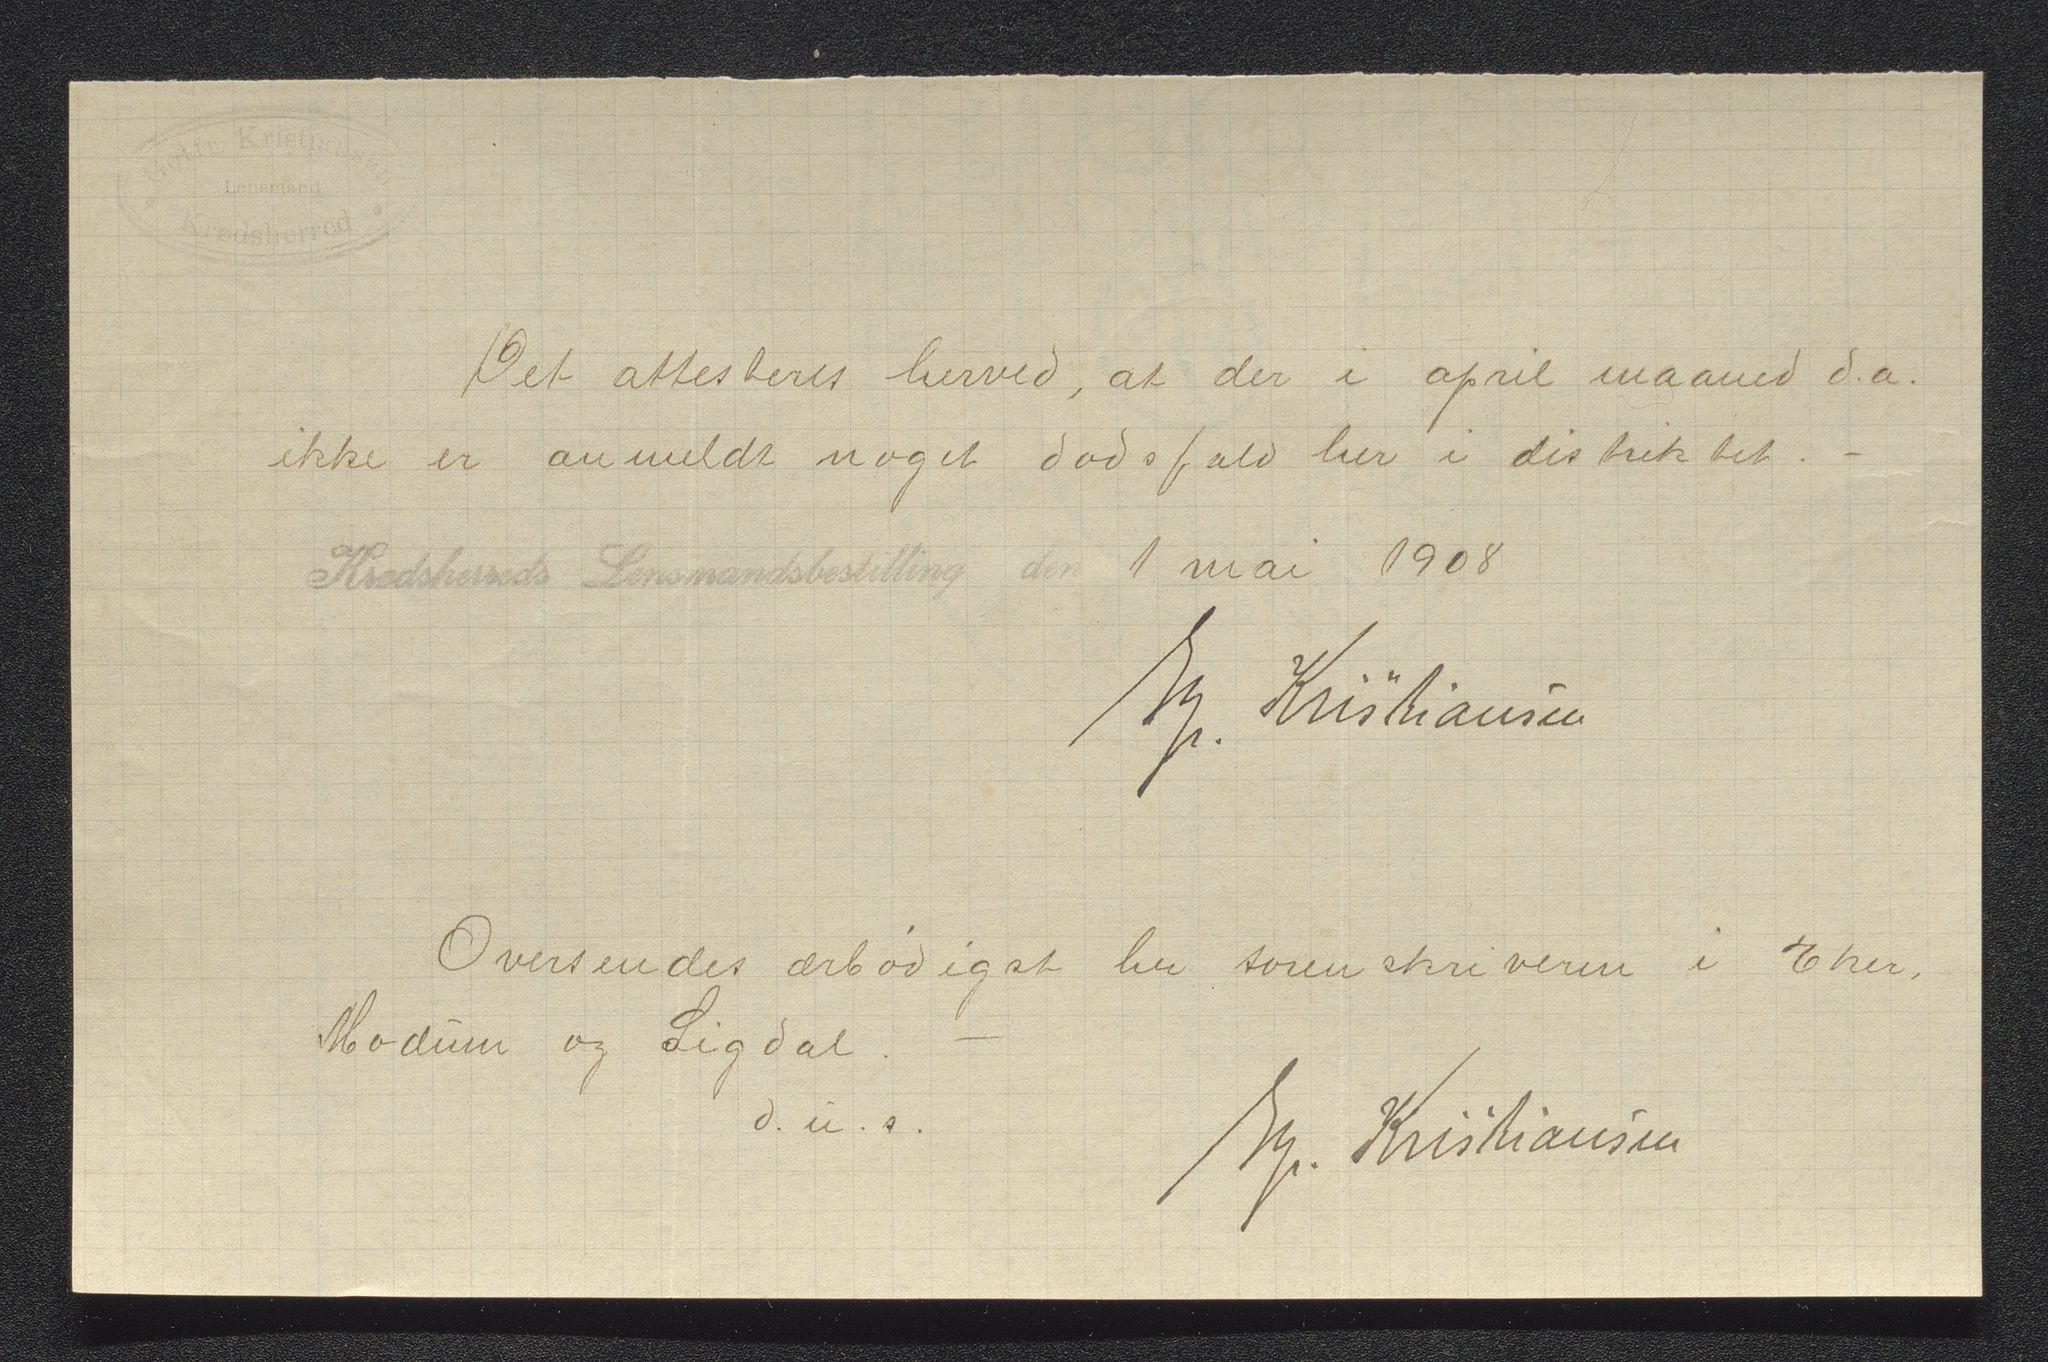 Kristiansen
Lensmand
Krødsherred
Det attesteres herved, at der i april maaned d.a.
ikke er anmeldt noget dødsfald her i distriktet. –
Krødsherreds Lensmandsbestilling den 1 mai 1908
Kristiansen
Oversendes ærbødigst hr sorenskriveren i Eker,
Modum og Sigdal. –
d. u. s.
Kristiansen